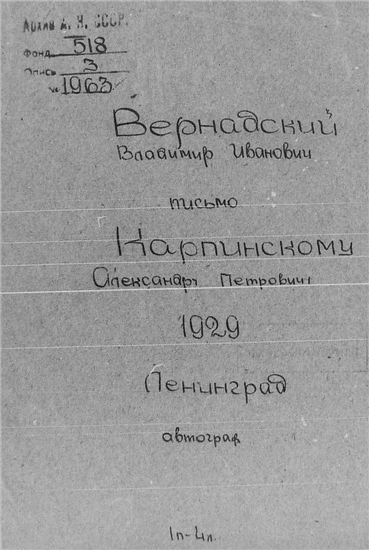 Архив А. Н. СССР.
Фонд 518
Опись 3
№ 1963
Вернадский
Владимир Иванович
письмо
Карпинскому
Александр Петрович
1929
Ленинград
автограф
1п-4л.